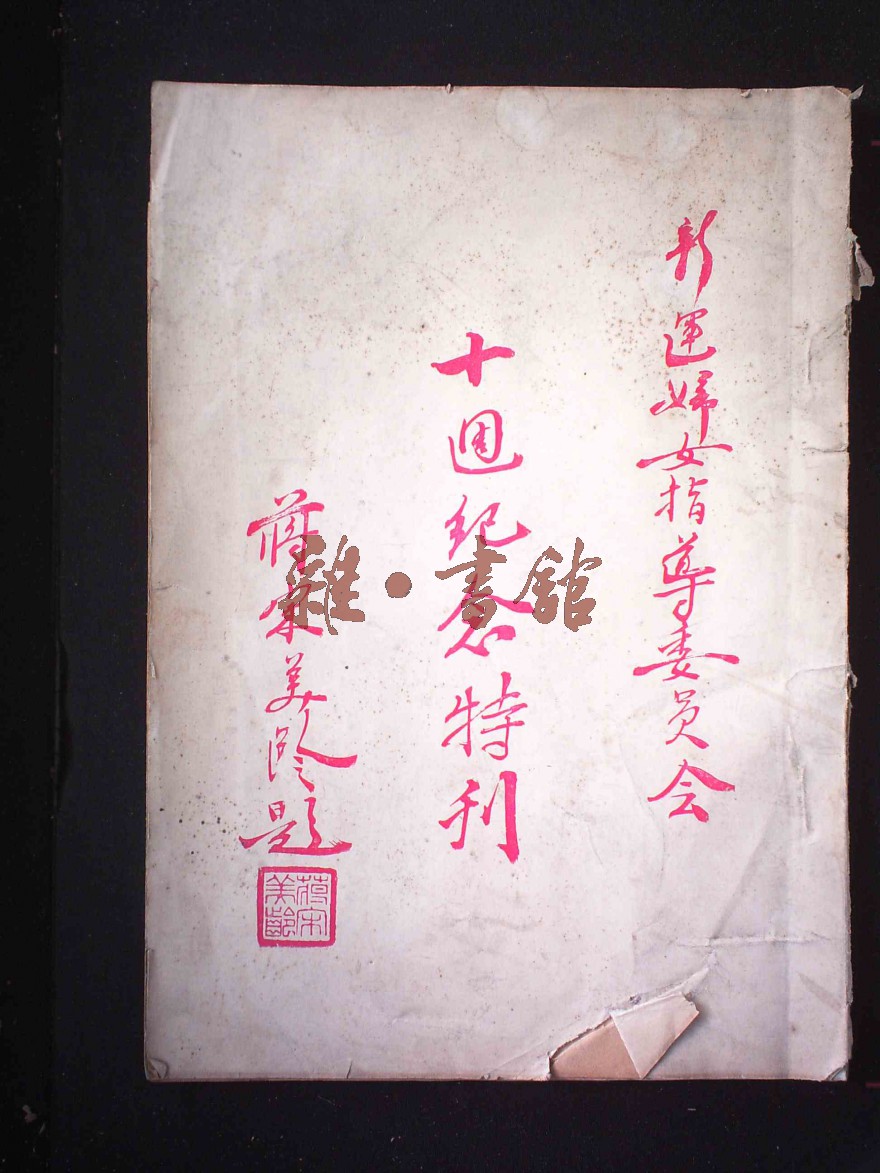 新運婦女指導委員会
十週紀念特刊
蔣宋美齡題
蔣宋美齡
雜·書館